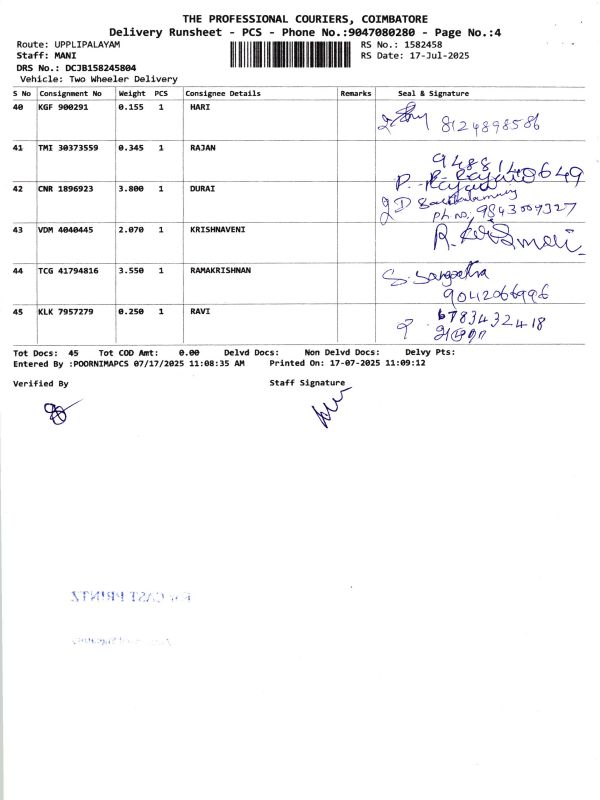 THE PROFESSIONAL COURIERS, COIMBATORE
Delivery Runsheet - PCS - Phone No.:9047080280 - Page No.:4
Route: UPPLIPALAYAM RS No.: 1582458
Staff: MANI RS Date: 17-Jul-2025
DRS No.: DCJB158245804
Vehicle: Two Wheeler Delivery
S No Consignment No Weight PCS Consignee Details Remarks Seal & Signature
40 KGF 900291 0.155 1 HARI
8124898586
41 TMI 30373559 0.345 1 RAJAN
9488140649
P. Rajan
42 CNR 1896923 3.800 1 DURAI
Ph no: 9843009327
43 VDM 4040445 2.070 1 KRISHNAVENI
44 TCG 41794816 3.550 1 RAMAKRISHNAN
S. Sangeetha
9042066996
45 KLK 7957279 0.250 1 RAVI
6783432418
Tot Docs: 45 Tot COD Amt: 0.00 Delvd Docs: Non Delvd Docs: Delvy Pts:
Entered By :POORNIMAPCS 07/17/2025 11:08:35 AM Printed On: 17-07-2025 11:09:12
Verified By Staff Signature